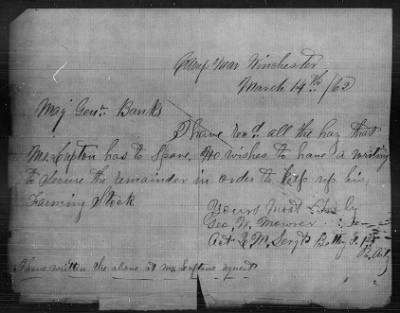 Camp near Winchester
March 14th /62
Maj Genl Banks
I have Recd all the hay that
Mr Lupton has to spare. He wishes to have a writing
to secure the remainder in order to keep up his
Farming Stock
Yours Most
Geo. W. Mowrer
Act Q M Sergt Batty
I have written the above at Mr Luptons request